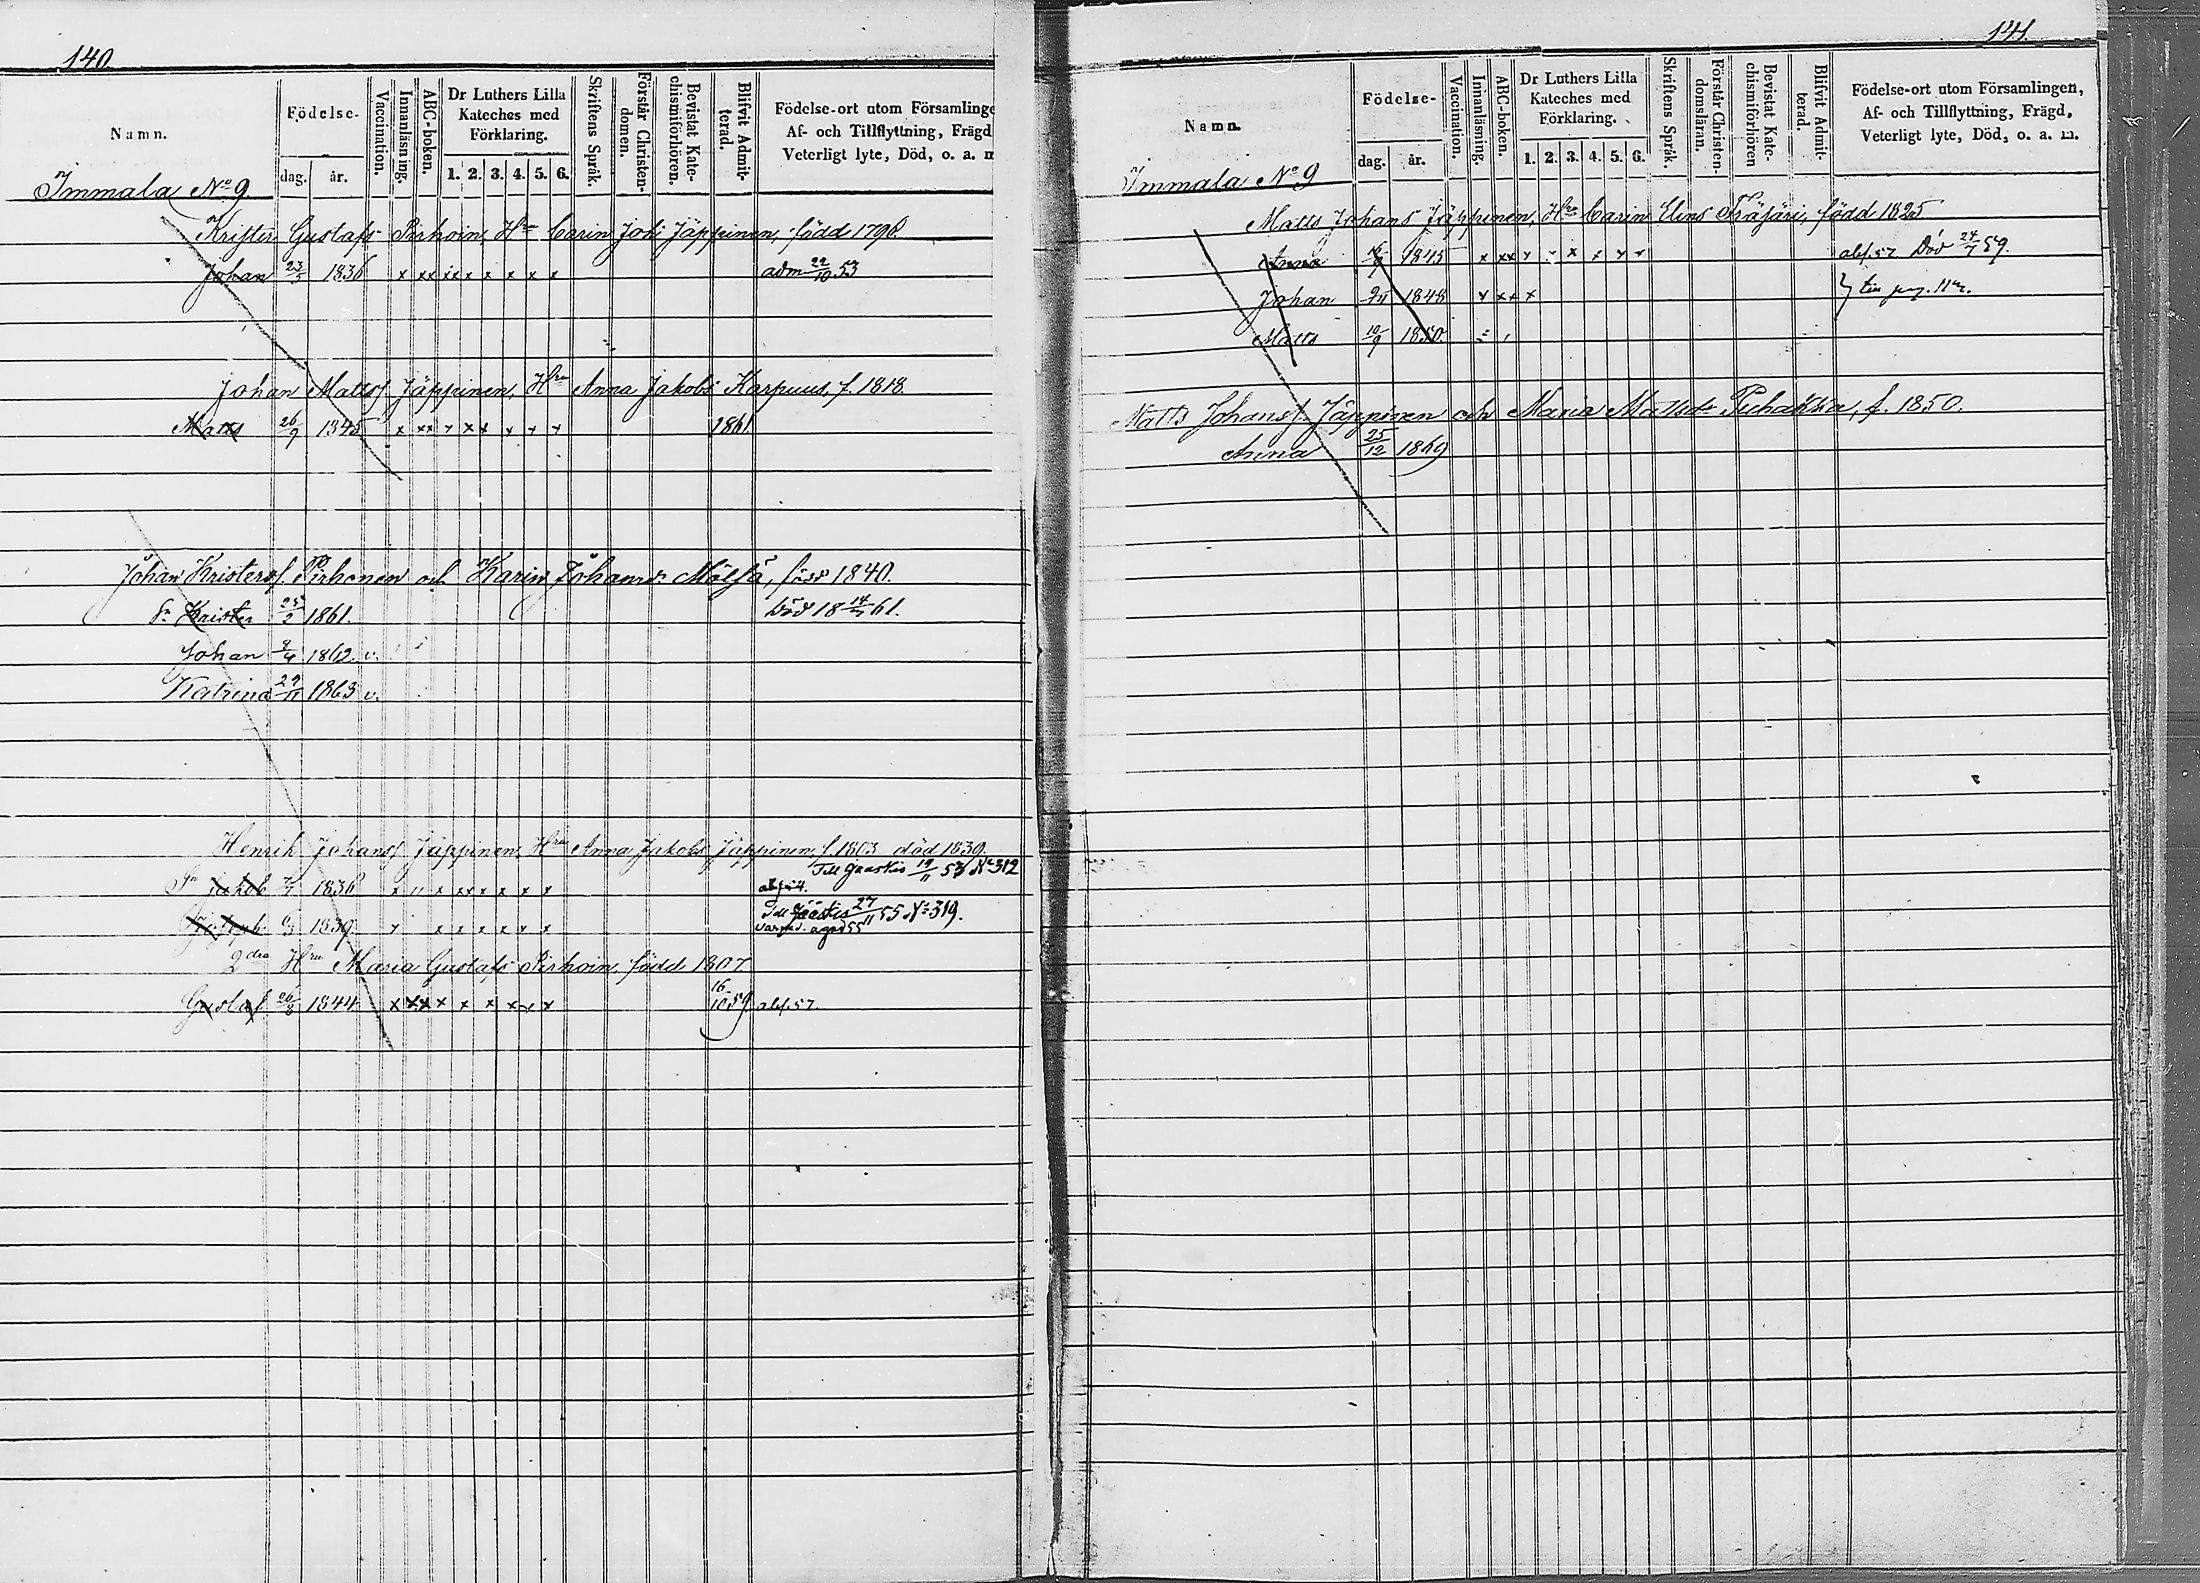 140.
Namn. Födelse- dag. år. Vaccination. Innanläsning. ABC-boken. Dr Luthers Lilla Kateches med Förklaring. 1. 2. 3. 4. 5. 6. Skriftens Språk. Förstår Christen- domen. Bevistat Kate- chismiförhören. Blifvit Admit- terad. Födelse-ort utom Församlinge Af- och Tillflyttning, Frägd Veterligt lyte, Död, o. a. m
Immala No 9
Krister Gustafs Pirhoin, Hru Carin Joh: Jäppinen, född 1796.
Johan 23/3 1836 x xx xx x x x x x adm 22/10 53
Johan Mattsf. Jäppinen, Hru Anna Jakobs Karpuus, f. 1818.
Matts 26/9 1345 x xx x xx x x x 1861.
Johan Kristersf. Pirhonen och Karin Johansd: Mölsä, född 1840.
Sn Krister 25/2 1861. Död 18 14/ 61.
Johan 1862. v.
Katrina 29/11 1863 v.
Henrik Johansf Jäppinen, Hru Anna Jakobs Jäppinen, f. 1803 död 1839.
Till Jaaskis 19/11 53 No 312
Sn Jakob 1836 x x xx x x x x
Till Jääskis 27/11 55 No 319.
1839. x x x x x x
2dra Hru Maria Gustafs Pirhoin, född 1807
Gustaf 26/8 1844 x xxx x x x x x 16/10 59. abs. 57.
141.
Namn. Födelse- dag. år. Vaccination. Innanläsning. ABC-boken. Dr Luthers Lilla Kateches med Förklaring. 1. 2. 3. 4. 5. 6. Skriftens Språk. Förstår Christen- domsläran. Bevistat Kate- chismiförhören Blifvit Admit- terad. Födelse-ort utom Församlingen, Af- och Tillflyttning, Frägd, Veterligt lyte, Död, o. a. m.
Immala No 9
Matts Johans Jäppinen, Hru Carin Elins Träjäri, född 1825
Anna 1845 x xx x x x x x abs. 57 Död 24/7 59.
Johan 1848 x xx x
Matts 10/9 1850.
Matts Johansf. Jäppinen och Maria Mattsdr Puhakka, f. 1850.
Anna 25/12 1869